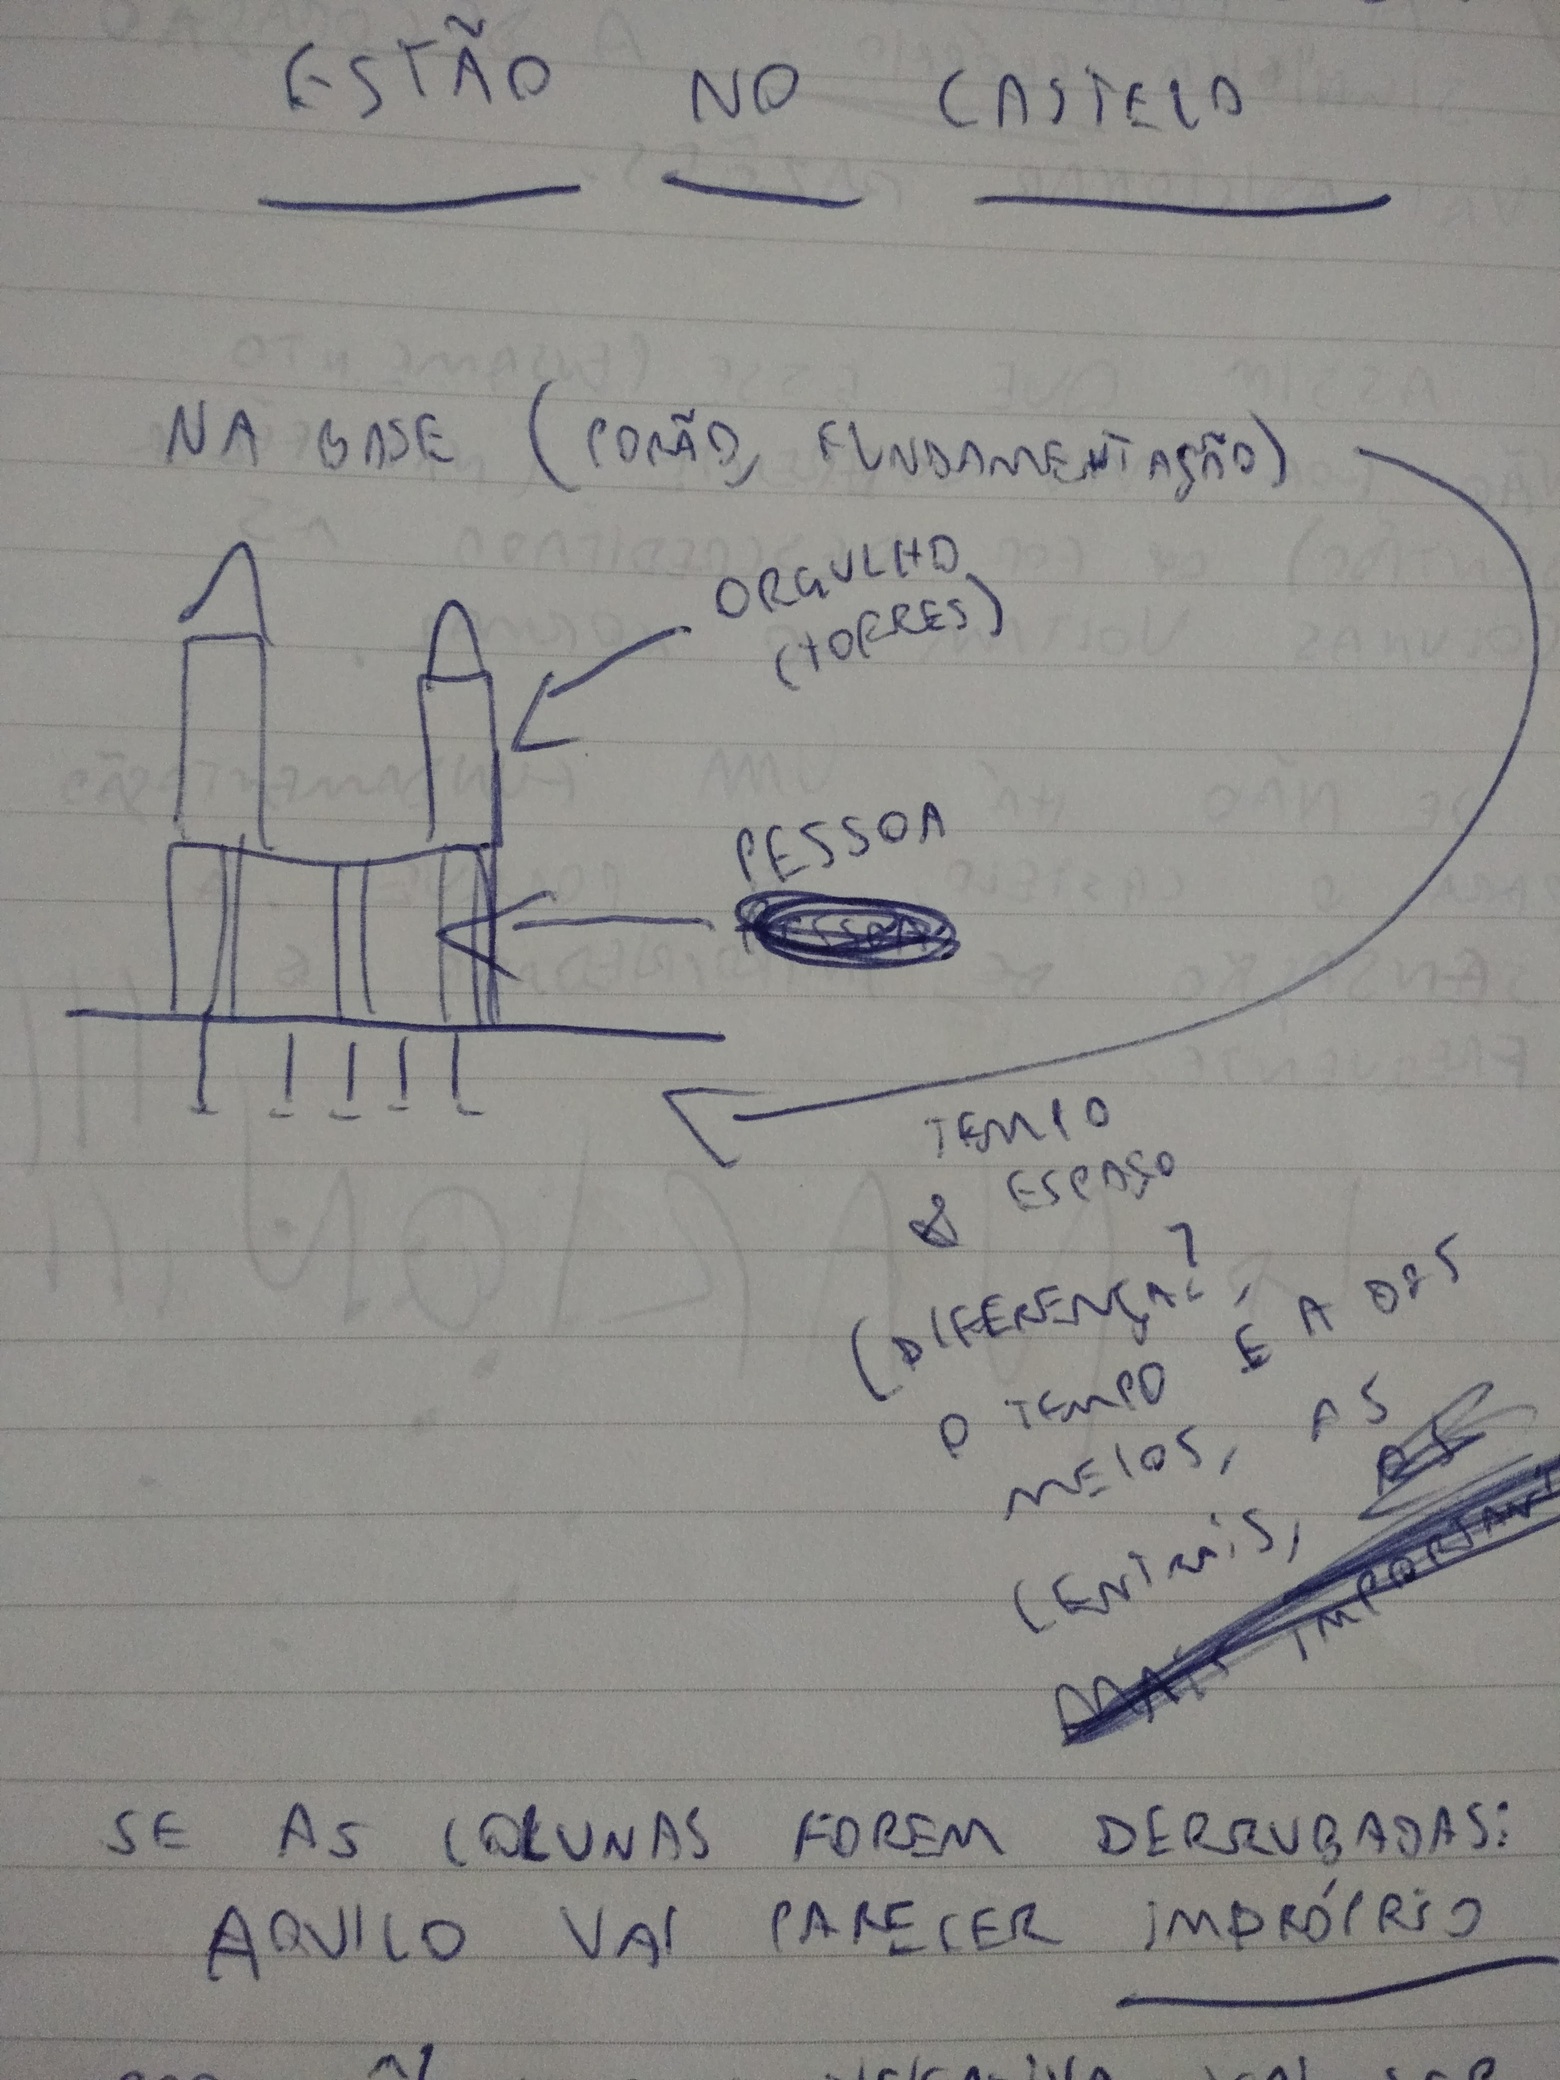 ESTÃO NO CASTELO
NA BASE (PORÃO, FUNDAMENTAÇÃO)
ORGULHO
(TORRES)
PESSOA
TEMPO
& ESPAÇO
(DIFERENÇA?
O TEMPO É A DOS
MEIOS, AS
CENTRAIS, AS
MAIS IMPORTANT
SE AS COLUNAS FOREM DERRUBADAS:
AQUILO VAI PARECER IMPRÓPRIO